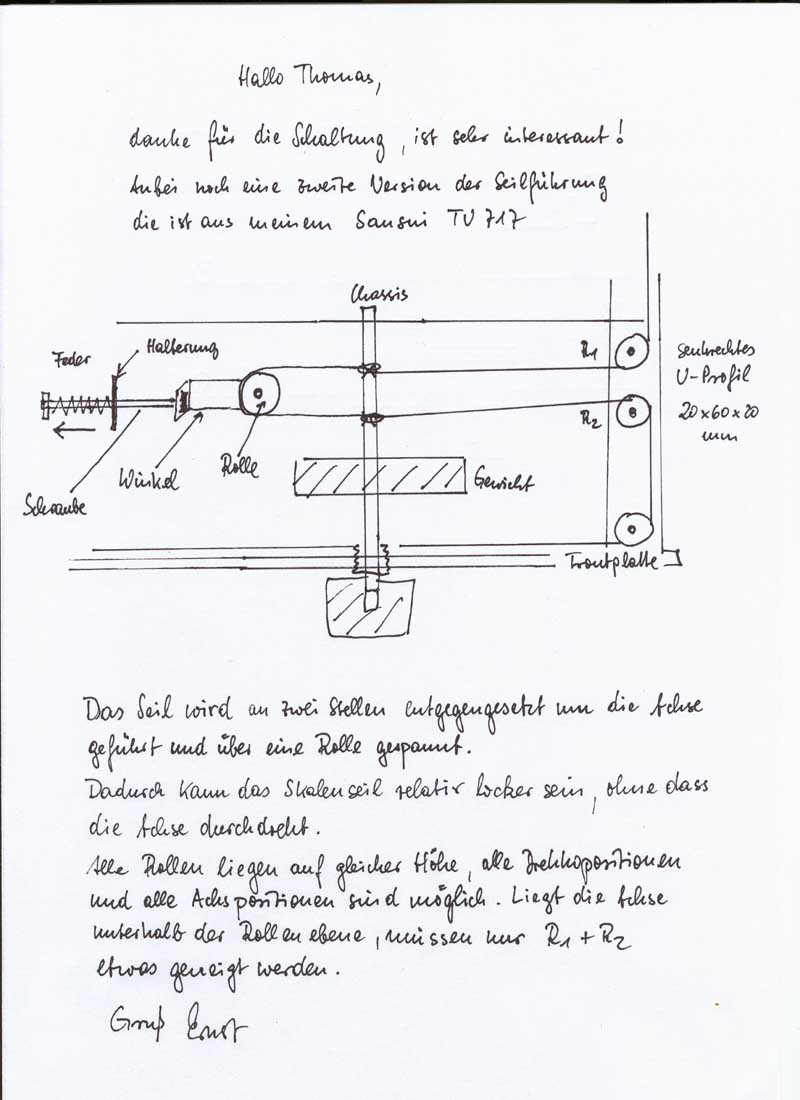 Hallo Thomas,
danke für die Schaltung, ist sehr interessant!
Anbei noch eine zweite Version der Seilführung
die ist aus meinem Sansui TU 717
Chassis
Feder
Halterung
R1
senkrechtes
U-Profil
20x60x20
mm
R2
Rolle
Winkel
Schraube
Gewicht
Frontplatte
Das Seil wird an zwei Stellen entgegengesetzt um die Achse
geführt und über eine Rolle gespannt.
Dadurch kann das Skalenseil relativ locker sein, ohne dass
die Achse durchdreht.
Alle Rollen liegen auf gleicher Höhe, alle Drehkopositionen
und alle Achspositionen sind möglich. Liegt die Achse
unterhalb der Rollenebene, müssen nur R1 + R2
etwas geneigt werden.
Gruß Ernst